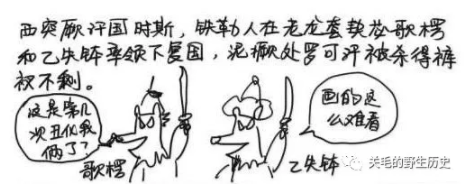 西突厥汗国时斯，铁勒人在老龙套契苾歌楞
和乙失钵率领下复国，泥撅处罗可汗被杀得裤
衩不剩。
这是第几
次丑化我
俩了？
画的这
么难看
歌楞
乙失钵
关毛的野生历史